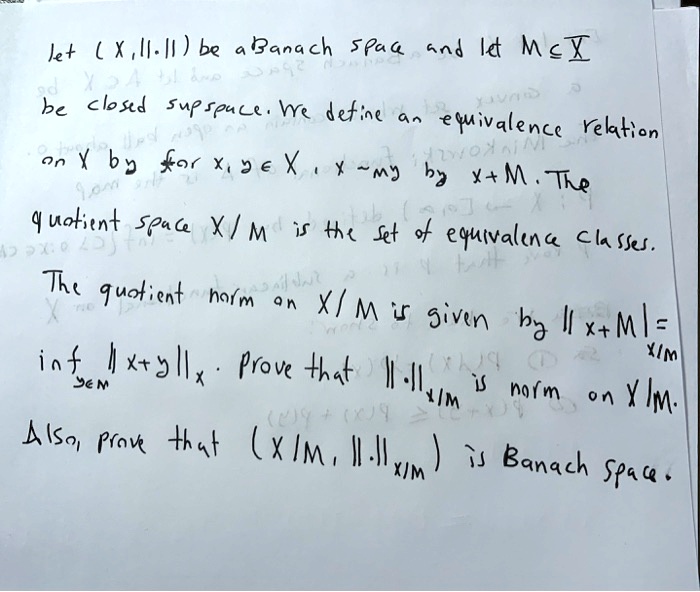 let (X,||.||) be a Banach space and let M ⊆ X
be closed supspace. We define an equivalence relation
on X by for x, y ∈ X, x ~My by x+M. The
quotient space X/M is the set of equivalence classes.
The quotient norm on X/M is given by ||x+M|| =
X/M
inf ||x+y||x. Prove that ||.||X/M is norm on X/M.
y∈M
Also, prove that (X/M, ||.||X/M) is Banach space.